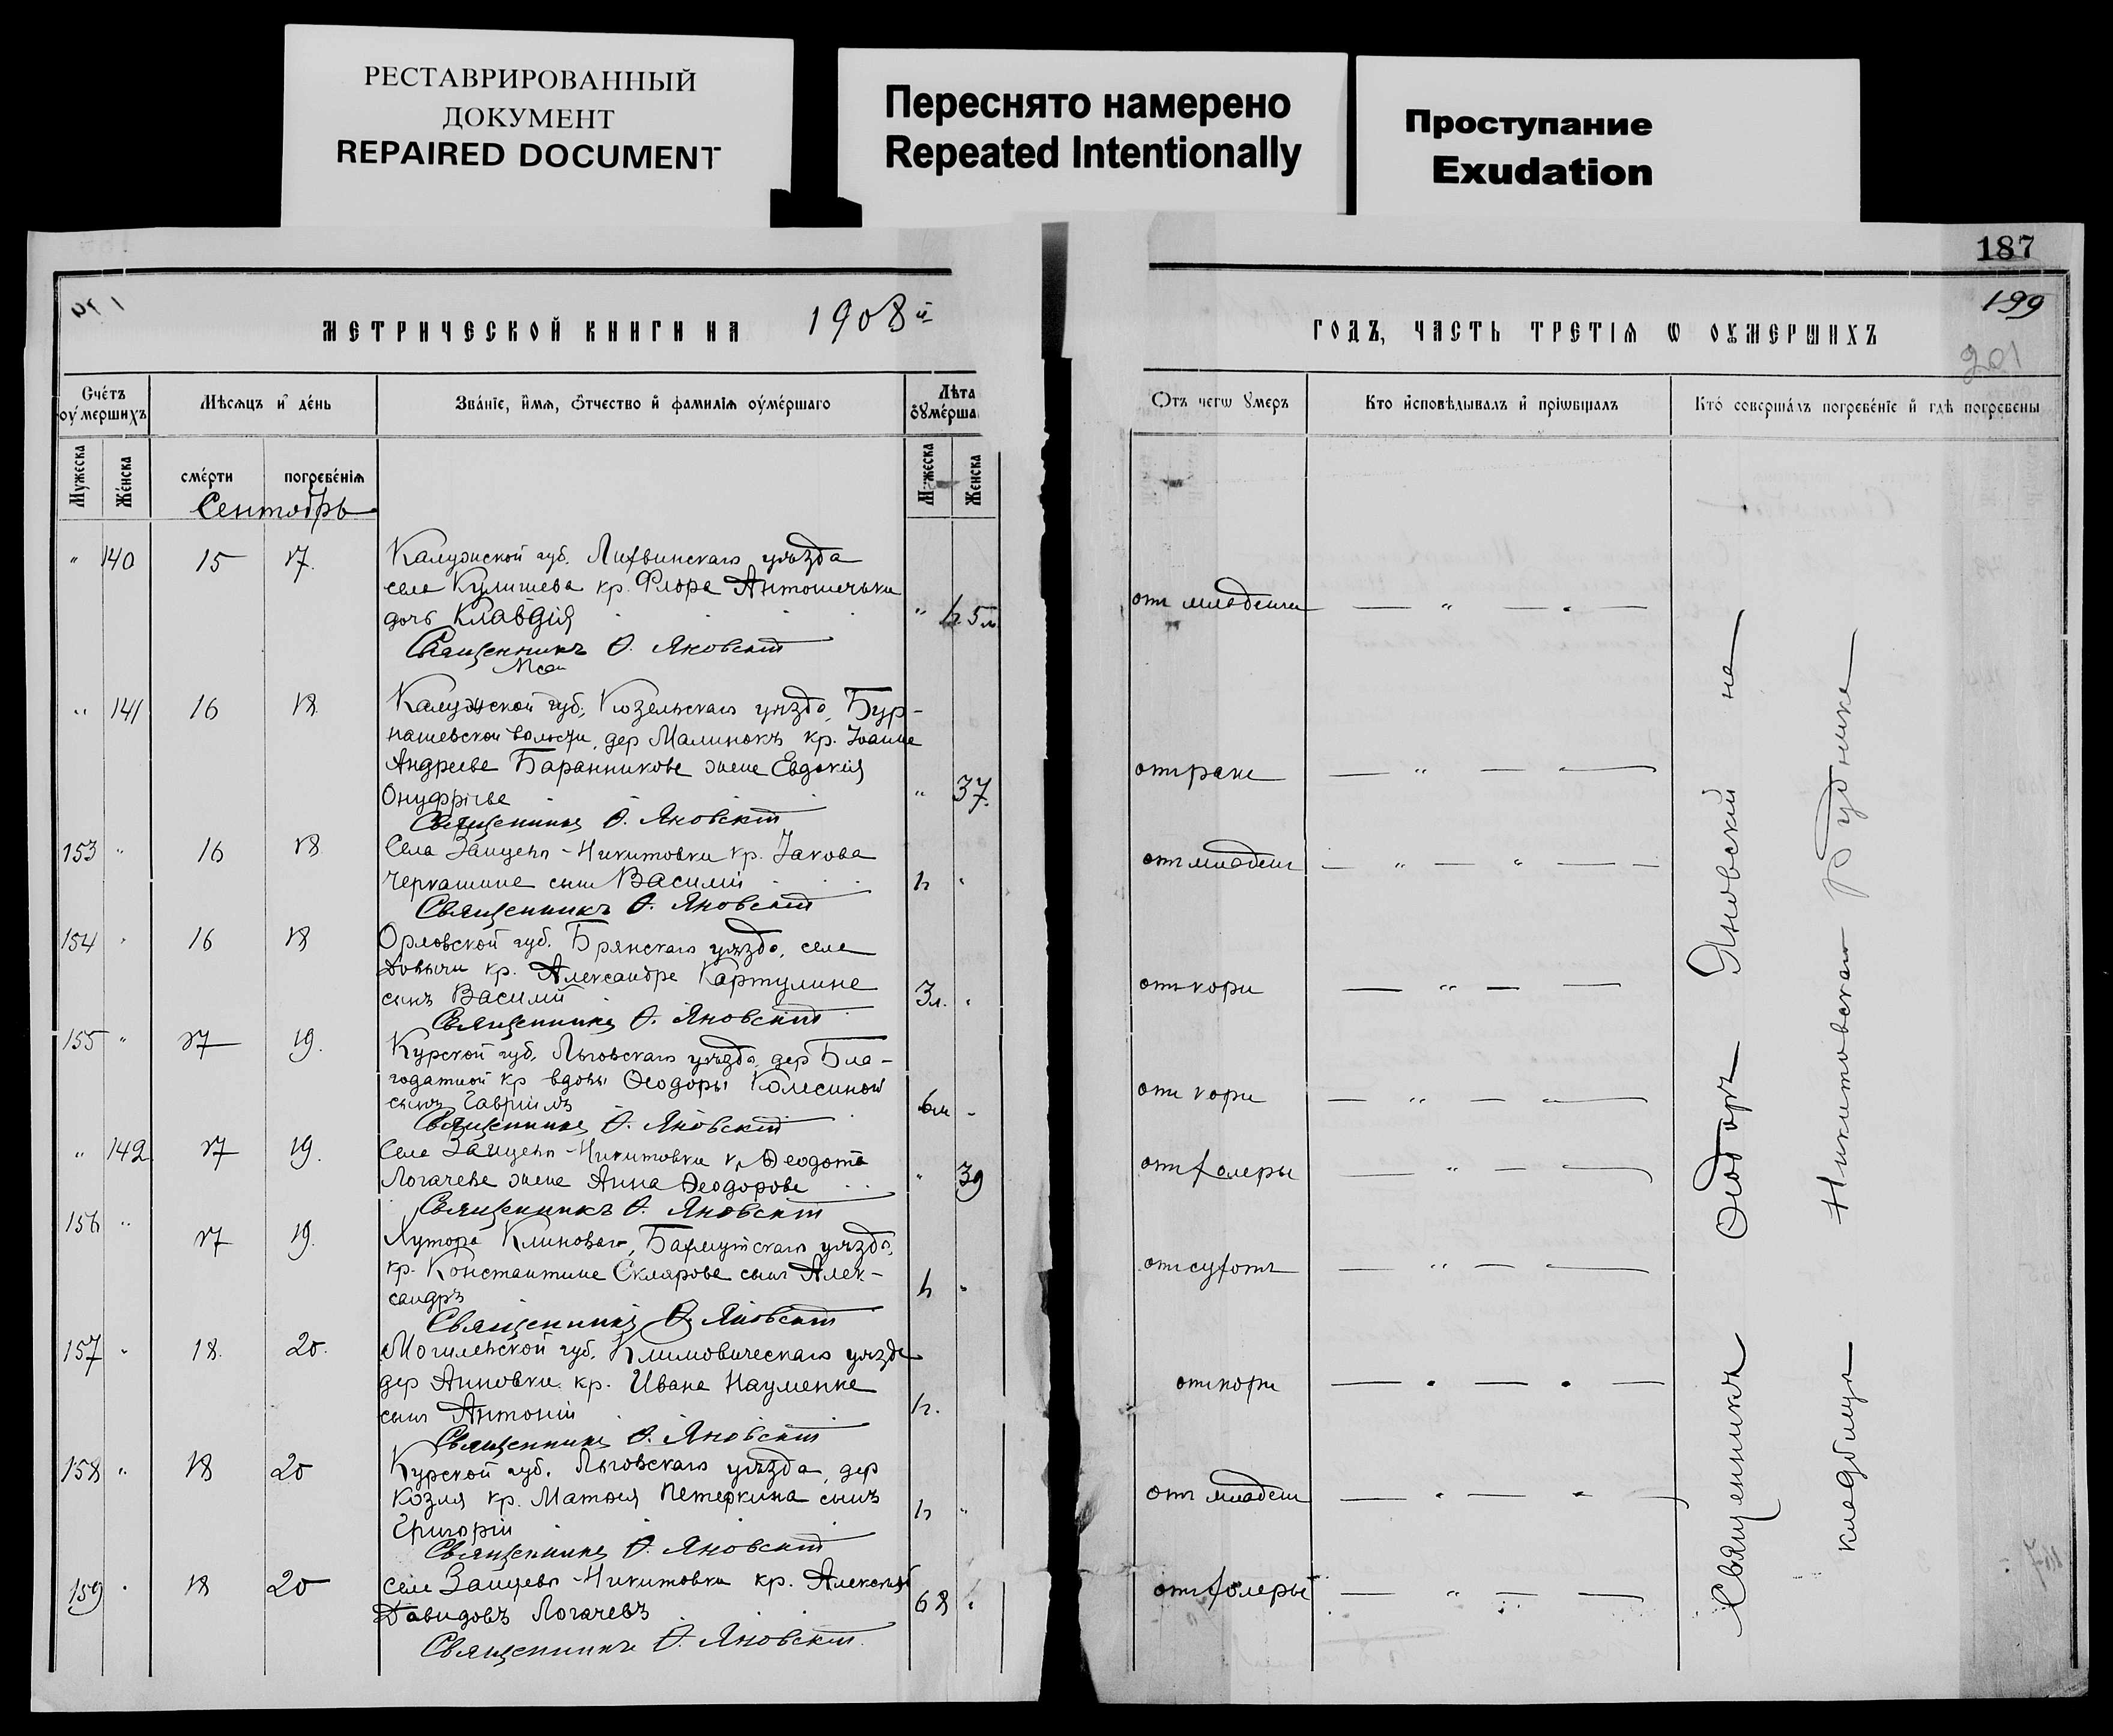 РЕСТАВРИРОВАННЫЙ
ДОКУМЕНТ
REPAIRED DOCUMENT
Переснято намерено
Repeated Intentionally
Проступание
Exudation
187
199
201
МЕТРИЧЕСКОЙ КНИГИ НА 1908й
ГОДЪ, ЧАСТЬ ТРЕТІѦ Ѡ ОУМЕРШИХЪ
Счетъ оумершихъ
Мѣсяцъ и день
Званіе, имя, отчество и фамилія оумершаго
Лѣта оумерша
Отъ чегѡ умеръ
Кто исповѣдывалъ и пріѡбщалъ
Кто совершалъ погребеніе и гдѣ погребены
Мужеска
Женска
смерти
погребенія
Мужеска
Женска
Сентябрь
" 140 15 17.
Калужской губ. Лихвинскаго уѣзда
села Кулишева кр. Флора Антошечкина
дочь Клавдія " 5 м. отъ младенч
Священникъ Ѳ. Яновскій
" 141 16 18
Калужской губ. Козельскаго уѣзда, Бур-
нашевской волости, дер Малинокъ кр. Іоанна
Андреева Баранникова жена Евдокія
Онуфріева " 37. отъ рака
Священникъ Ѳ. Яновскій
153 " 16 18
Села Зайцева-Никитовки кр. Іакова
Черкашина сынъ Василій отъ младенч
Священникъ Ѳ. Яновскій
154 " 16 18
Орловской губ. Брянскаго уѣзда, села
кр. Александра Картулина
сынъ Василій 3 л. " отъ кори
Священникъ Ѳ. Яновскій
155 " 17 19.
Курской губ. Льговскаго уѣзда дер Бла-
годатной кр вдовы Ѳеодоры Колесиной
сынъ Гавріилъ 6 м " отъ кори
Священникъ Ѳ. Яновскій
" 142 17 19.
Села Зайцева-Никитовки кр Ѳеодота
Логачева жена Анна Ѳеодорова " 39 отъ холеры
Священникъ Ѳ. Яновскій
156 " 17 19.
Хутора Клиноваго, Бахмутскаго уѣзда,
кр. Константина Склярова сынъ Алек-
сандръ отъ сухотъ
Священникъ Ѳ. Яновскій
157 " 18. 20.
Могилевской губ. Климовическаго уѣзда
дер Анновки кр. Ивана Науменка
сынъ Антоній отъ кори
Священникъ Ѳ. Яновскій
158 " 18 20
Курской губ. Льговскаго уѣзда, дер
Козля кр. Матѳея Петеркина сынъ
Григорій отъ младенч
Священникъ Ѳ. Яновскій
159 " 18 20
села Зайцева-Никитовки кр. Алексій
Давидовъ Логачевъ 68 " отъ холеры
Священникъ Ѳ. Яновскій.
Священникъ Ѳеодоръ Яновскій на
кладбищѣ Никитовскаго рудника